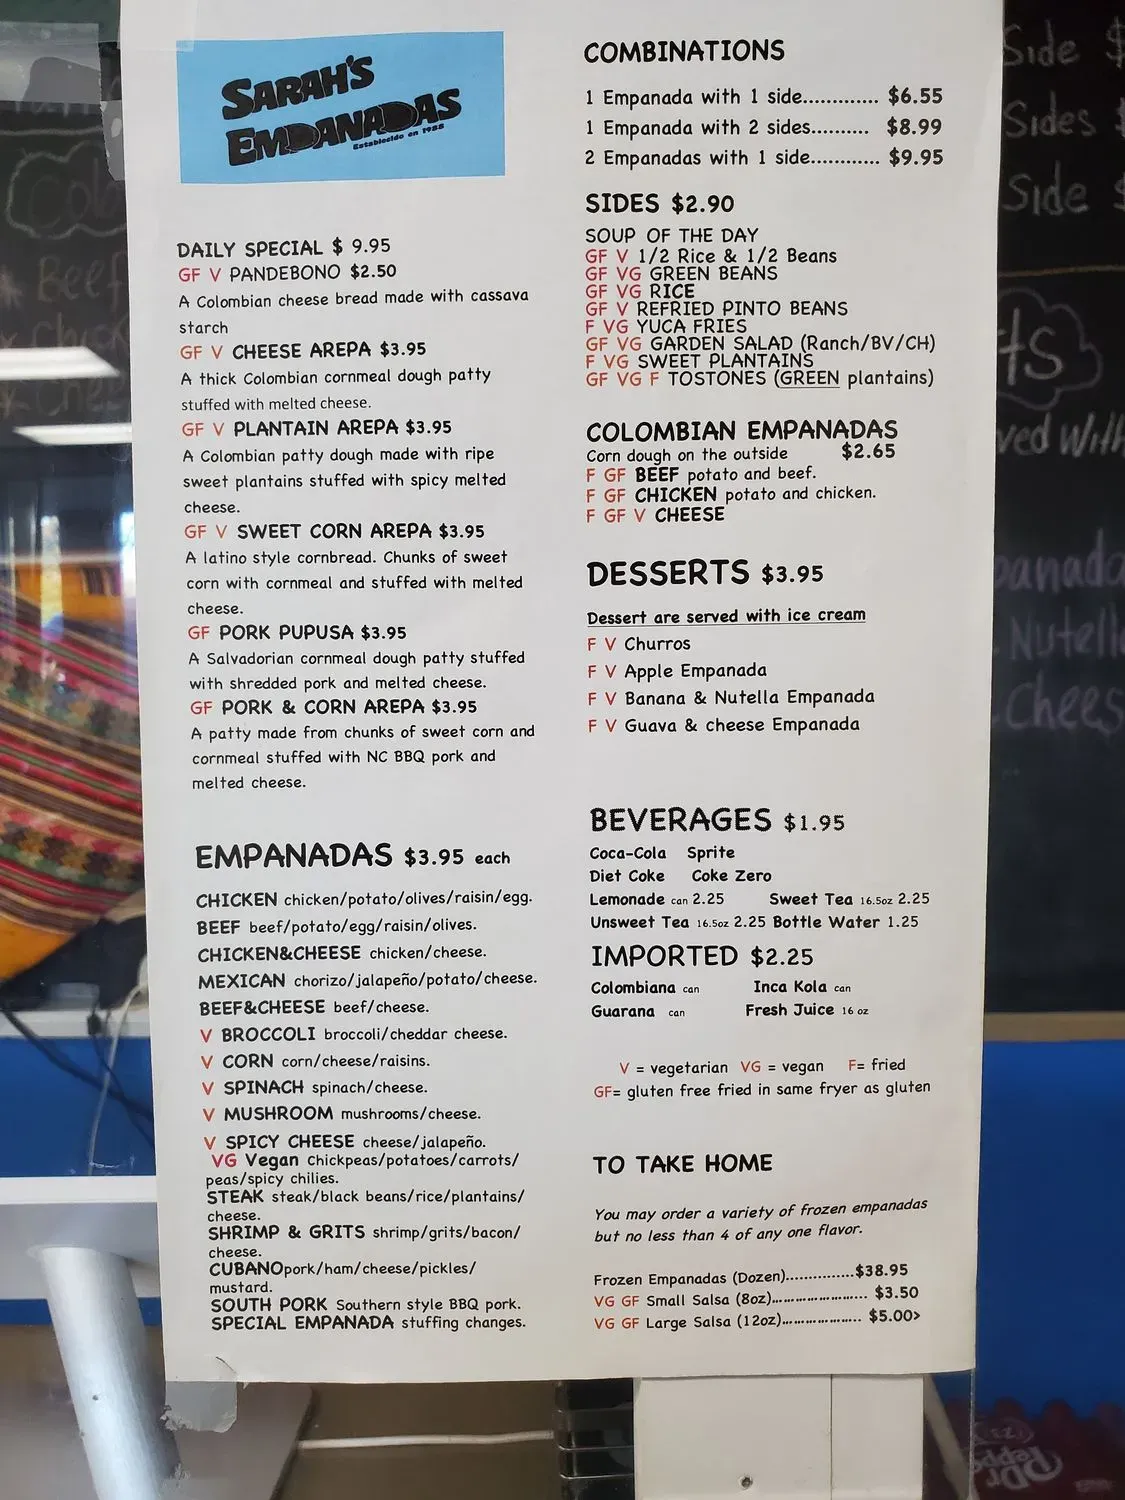 SARAH'S
EMPANADAS
Establecido en 1988
DAILY SPECIAL $ 9.95
GF V PANDEBONO $2.50
A Colombian cheese bread made with cassava
starch
GF V CHEESE AREPA $3.95
A thick Colombian cornmeal dough patty
stuffed with melted cheese.
GF V PLANTAIN AREPA $3.95
A Colombian patty dough made with ripe
sweet plantains stuffed with spicy melted
cheese.
GF V SWEET CORN AREPA $3.95
A latino style cornbread. Chunks of sweet
corn with cornmeal and stuffed with melted
cheese.
GF PORK PUPUSA $3.95
A Salvadorian cornmeal dough patty stuffed
with shredded pork and melted cheese.
GF PORK & CORN AREPA $3.95
A patty made from chunks of sweet corn and
cornmeal stuffed with NC BBQ pork and
melted cheese.
EMPANADAS $3.95 each
CHICKEN chicken/potato/olives/raisin/egg.
BEEF beef/potato/egg/raisin/olives.
CHICKEN&CHEESE chicken/cheese.
MEXICAN chorizo/jalapeño/potato/cheese.
BEEF&CHEESE beef/cheese.
V BROCCOLI broccoli/cheddar cheese.
V CORN corn/cheese/raisins.
V SPINACH spinach/cheese.
V MUSHROOM mushrooms/cheese.
V SPICY CHEESE cheese/jalapeño.
VG Vegan Chickpeas/potatoes/carrots/
peas/spicy chilies.
STEAK steak/black beans/rice/plantains/
cheese.
SHRIMP & GRITS shrimp/grits/bacon/
cheese.
CUBANOpork/ham/cheese/pickles/
mustard.
SOUTH PORK Southern style BBQ pork.
SPECIAL EMPANADA stuffing changes.
COMBINATIONS
1 Empanada with 1 side............. $6.55
1 Empanada with 2 sides.......... $8.99
2 Empanadas with 1 side............ $9.95
SIDES $2.90
SOUP OF THE DAY
GF V 1/2 Rice & 1/2 Beans
GF VG GREEN BEANS
GF VG RICE
GF V REFRIED PINTO BEANS
F VG YUCA FRIES
GF VG GARDEN SALAD (Ranch/BV/CH)
F VG SWEET PLANTAINS
GF VG F TOSTONES (GREEN plantains)
COLOMBIAN EMPANADAS
Corn dough on the outside $2.65
F GF BEEF potato and beef.
F GF CHICKEN potato and chicken.
F GF V CHEESE
DESSERTS $3.95
Dessert are served with ice cream
F V Churros
F V Apple Empanada
F V Banana & Nutella Empanada
F V Guava & cheese Empanada
BEVERAGES $1.95
Coca-Cola Sprite
Diet Coke Coke Zero
Lemonade can 2.25 Sweet Tea 16.5oz 2.25
Unsweet Tea 16.5oz 2.25 Bottle Water 1.25
IMPORTED $2.25
Colombiana can Inca Kola can
Guarana can Fresh Juice 16 oz
V = vegetarian VG = vegan F= fried
GF= gluten free fried in same fryer as gluten
TO TAKE HOME
You may order a variety of frozen empanadas
but no less than 4 of any one flavor.
Frozen Empanadas (Dozen)..............$38.95
VG GF Small Salsa (8oz)........................ $3.50
VG GF Large Salsa (12oz).................... $5.00>
Side $
Sides $
Side $
Beef